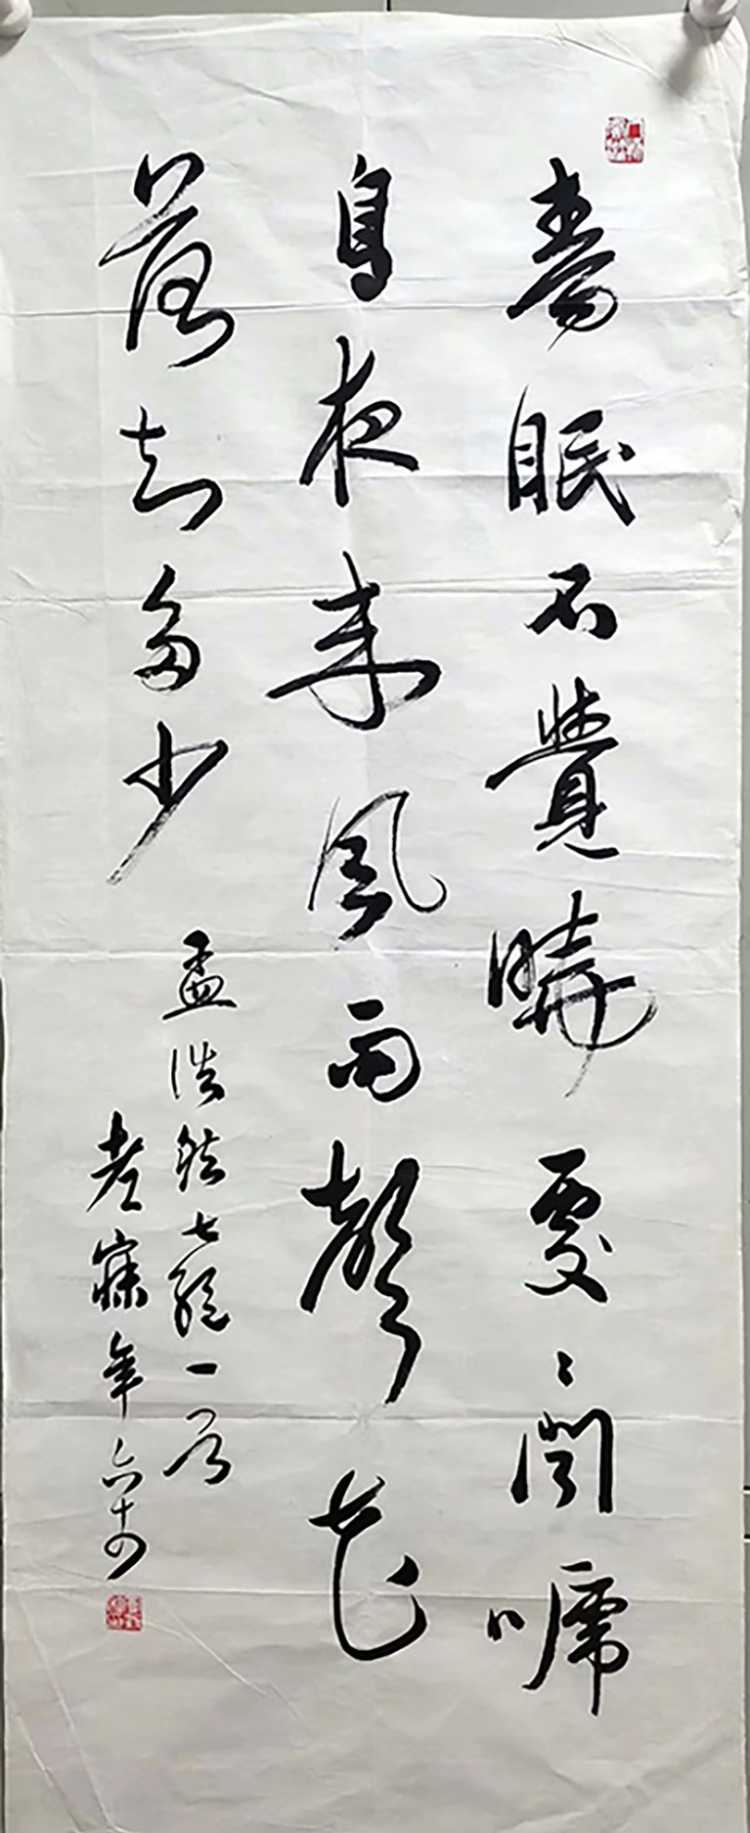 春眠不覺曉處〻聞嗁
鳥夜来風雨聲花
落知多少
孟浩然七絕一首
老寐年六十四